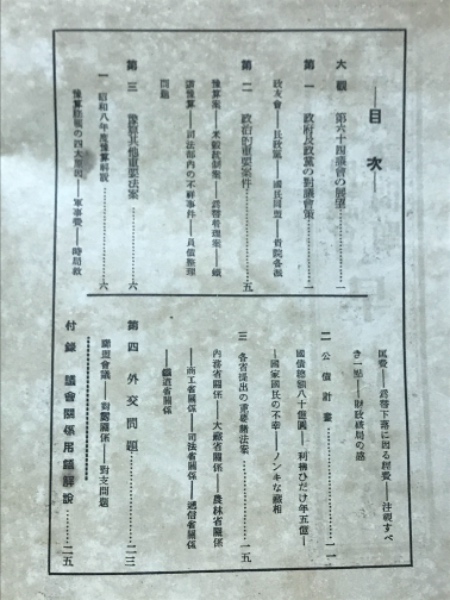 ——目次——
大觀 第六十四議會の展望…………一
第一 政府及政黨の對議會策…………一
政友會——民政黨——國民同盟——貴院各派
第二 政治的重要案件…………五
豫算案——米穀統制案——爲替管理案——鐵
諸豫算——司法部内の不祥事件——負債整理
問題
第三 豫算其他重要法案…………六
一 昭和八年度豫算解說…………六
豫算膨脹の四大原因——軍事費——時局救
匡費——爲替下落に因る經費——注視すべ
き一點——財政經局の癌
二 公債計畫…………一一
國債總額八十億圓——利拂ひだけ年五億—
—國家國民の不幸——ノンキな藏相
三 各省提出の重要諸法案…………一五
內務省關係——大藏省關係——農林省關係
——商工省關係——司法省關係——遞信省關係
——鐵道省關係
第四 外交問題…………二三
聯盟會議——對露關係——對支問題
付錄 議會關係用語解說…………二五